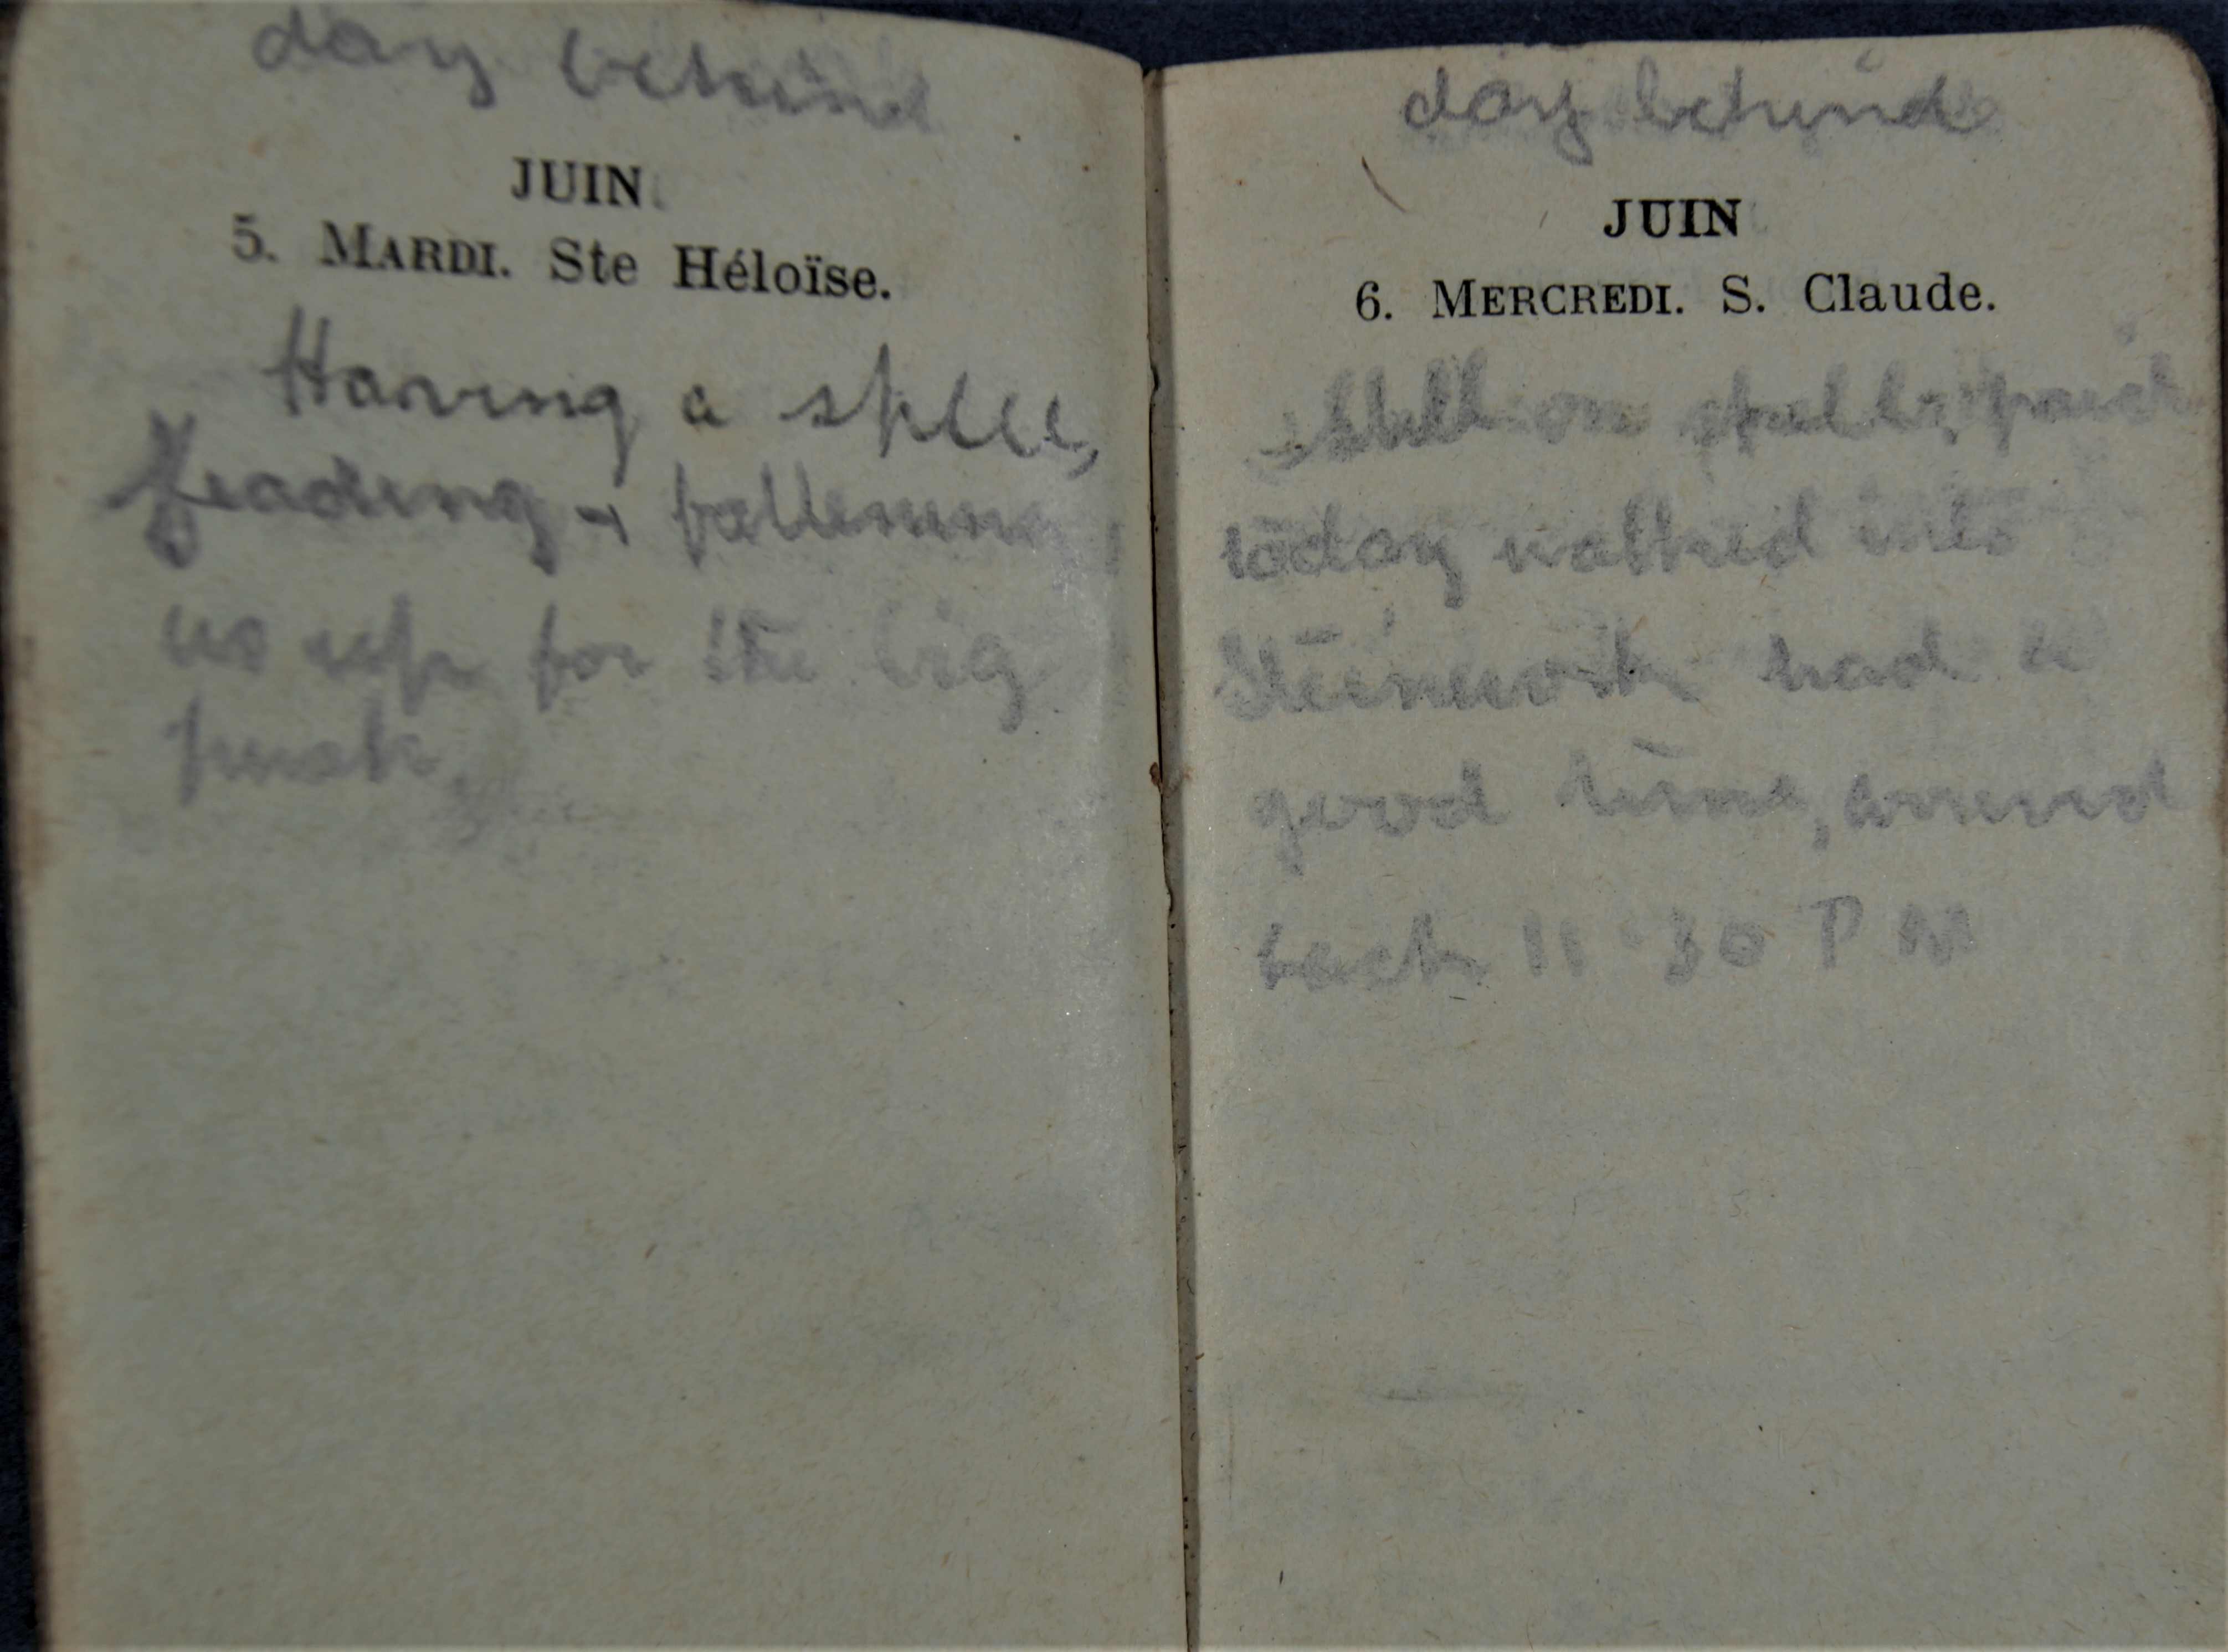 day behind
JUIN
5. MARDI. Ste Héloïse.
Having a spell,
feading & fattening
us up for the big
push.
day behind
JUIN
6. MERCREDI. S. Claude.
Still on spell, paid
today walked into
Steenwerck had a
good time, arrived
back 11.30 PM